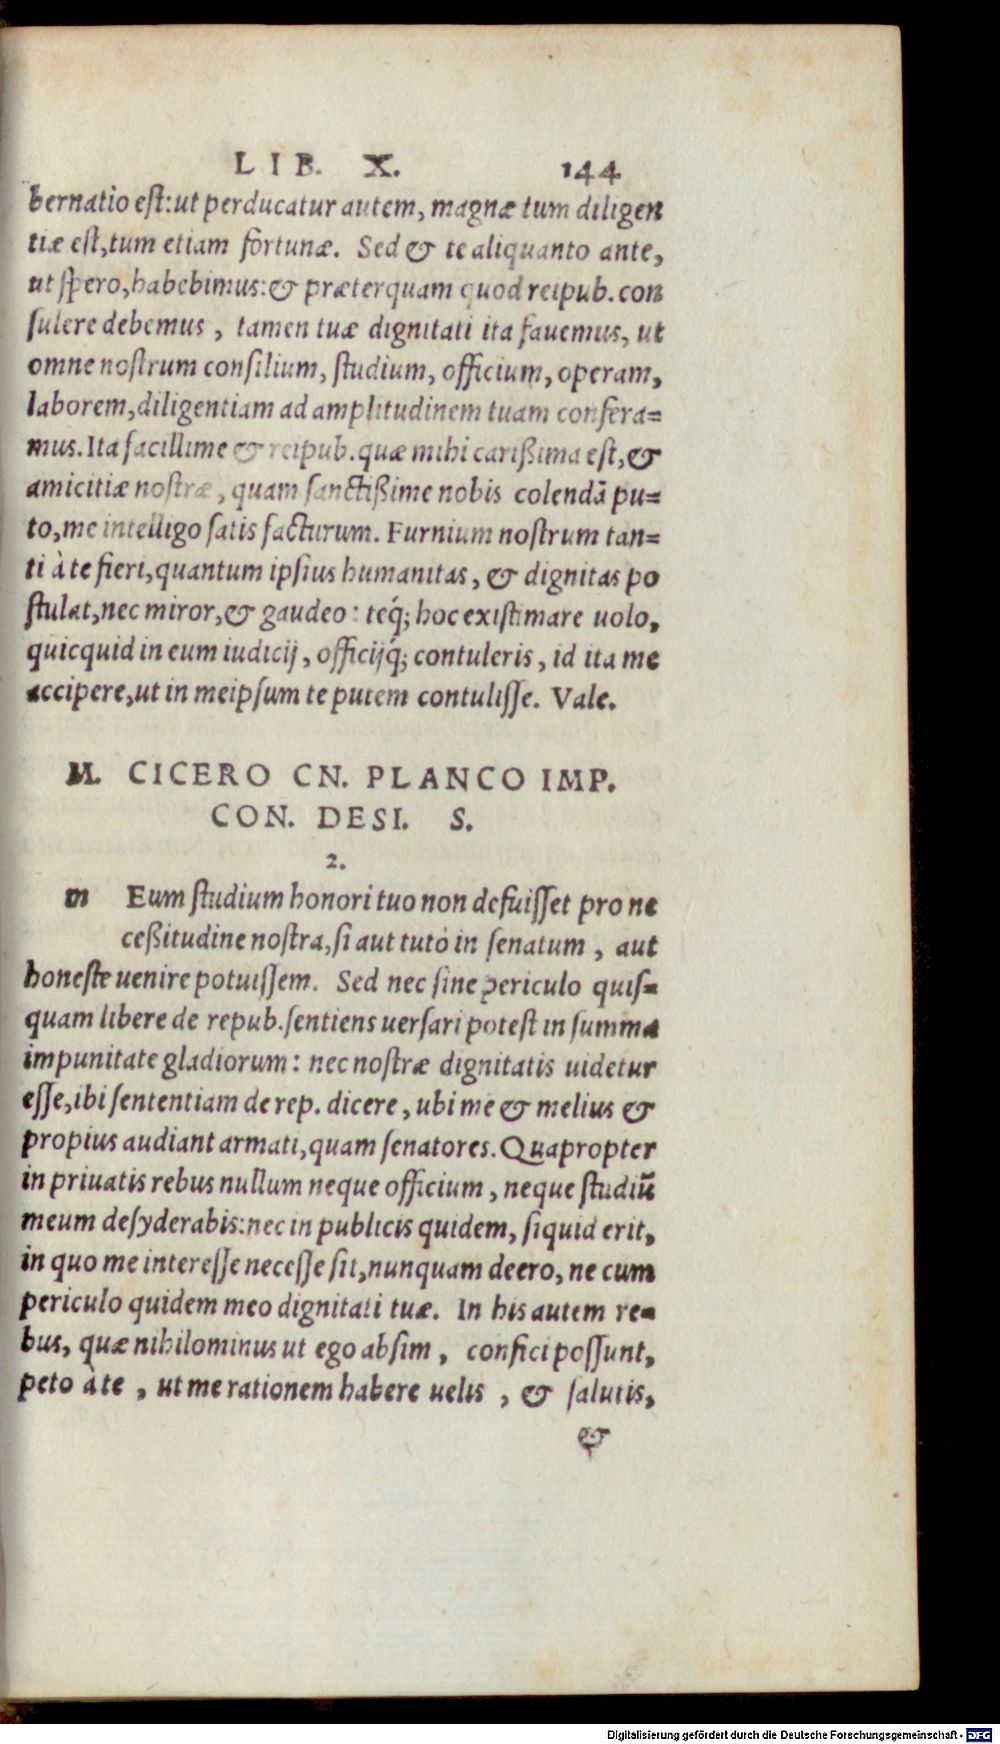 LIB. X. 144
bernatio est:ut perducatur autem, magnæ tum diligen
tiæ est,tum etiam fortunæ. Sed & te aliquanto ante,
ut spero,habebimus:& præterquam quod reipub.con
sulere debemus, tamen tuæ dignitati ita fauemus, ut
omne nostrum consilium, studium, officium, operam,
laborem,diligentiam ad amplitudinem tuam confera=
mus.Ita facillime & reipub.quæ mihi carißima est,&
amicitiæ nostræ, quam sanctißime nobis colendā pu=
to,me intelligo satis facturum. Furnium nostrum tan=
ti à te fieri,quantum ipsius humanitas, & dignitas po
stulat,nec miror,& gaudeo: teq́; hoc existimare uolo,
quicquid in eum iudicij, officijq́; contuleris, id ita me
accipere,ut in meipsum te putem contulisse. Vale.
M. CICERO CN. PLANCO IMP.
CON. DESI. S.
2.
m Eum studium honori tuo non defuisset pro ne
ceßitudine nostra,si aut tutò in senatum, aut
honeste uenire potuissem. Sed nec sine periculo quis=
quam libere de repub.sentiens uersari potest in summa
impunitate gladiorum: nec nostræ dignitatis uidetur
esse,ibi sententiam de rep. dicere, ubi me & melius &
propius audiant armati,quam senatores. Quapropter
in priuatis rebus nullum neque officium, neque studiū
meum desyderabis:nec in publicis quidem, siquid erit,
in quo me interesse necesse sit,nunquam deero, ne cum
periculo quidem meo dignitati tuæ. In his autem re=
bus, quæ nihilominus ut ego absim, confici possunt,
peto à te, ut me rationem habere uelis, & salutis,
&
Digitalisierung gefördert durch die Deutsche Forschungsgemeinschaft - DFG